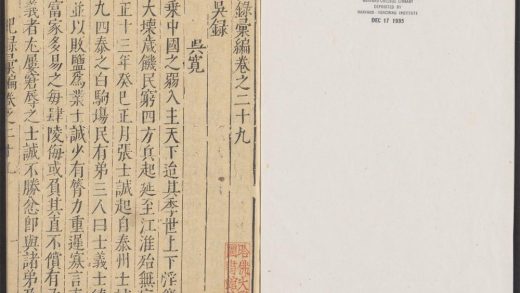 DEPOSITED BY
HARVARD-YENCHING INSTITUTE
DEC 17 1935
錄彙編卷之二十九
吳錄
吳寬
乘中國之弱入主天下迨其季世上下淫
大壞歲饑民窮四方兵起延至江淮殆無
正十三年癸巳正月張士誠起自泰州士
九四泰之白駒塲民有弟三人曰士義士
並以敗鹽爲業士誠少有膂力重遲寡言
富家多易之每肆陵侮或負其直不償有
義者尤屢窘辱之士誠不勝忿即與諸弟
紀錄彙編卷之二十九